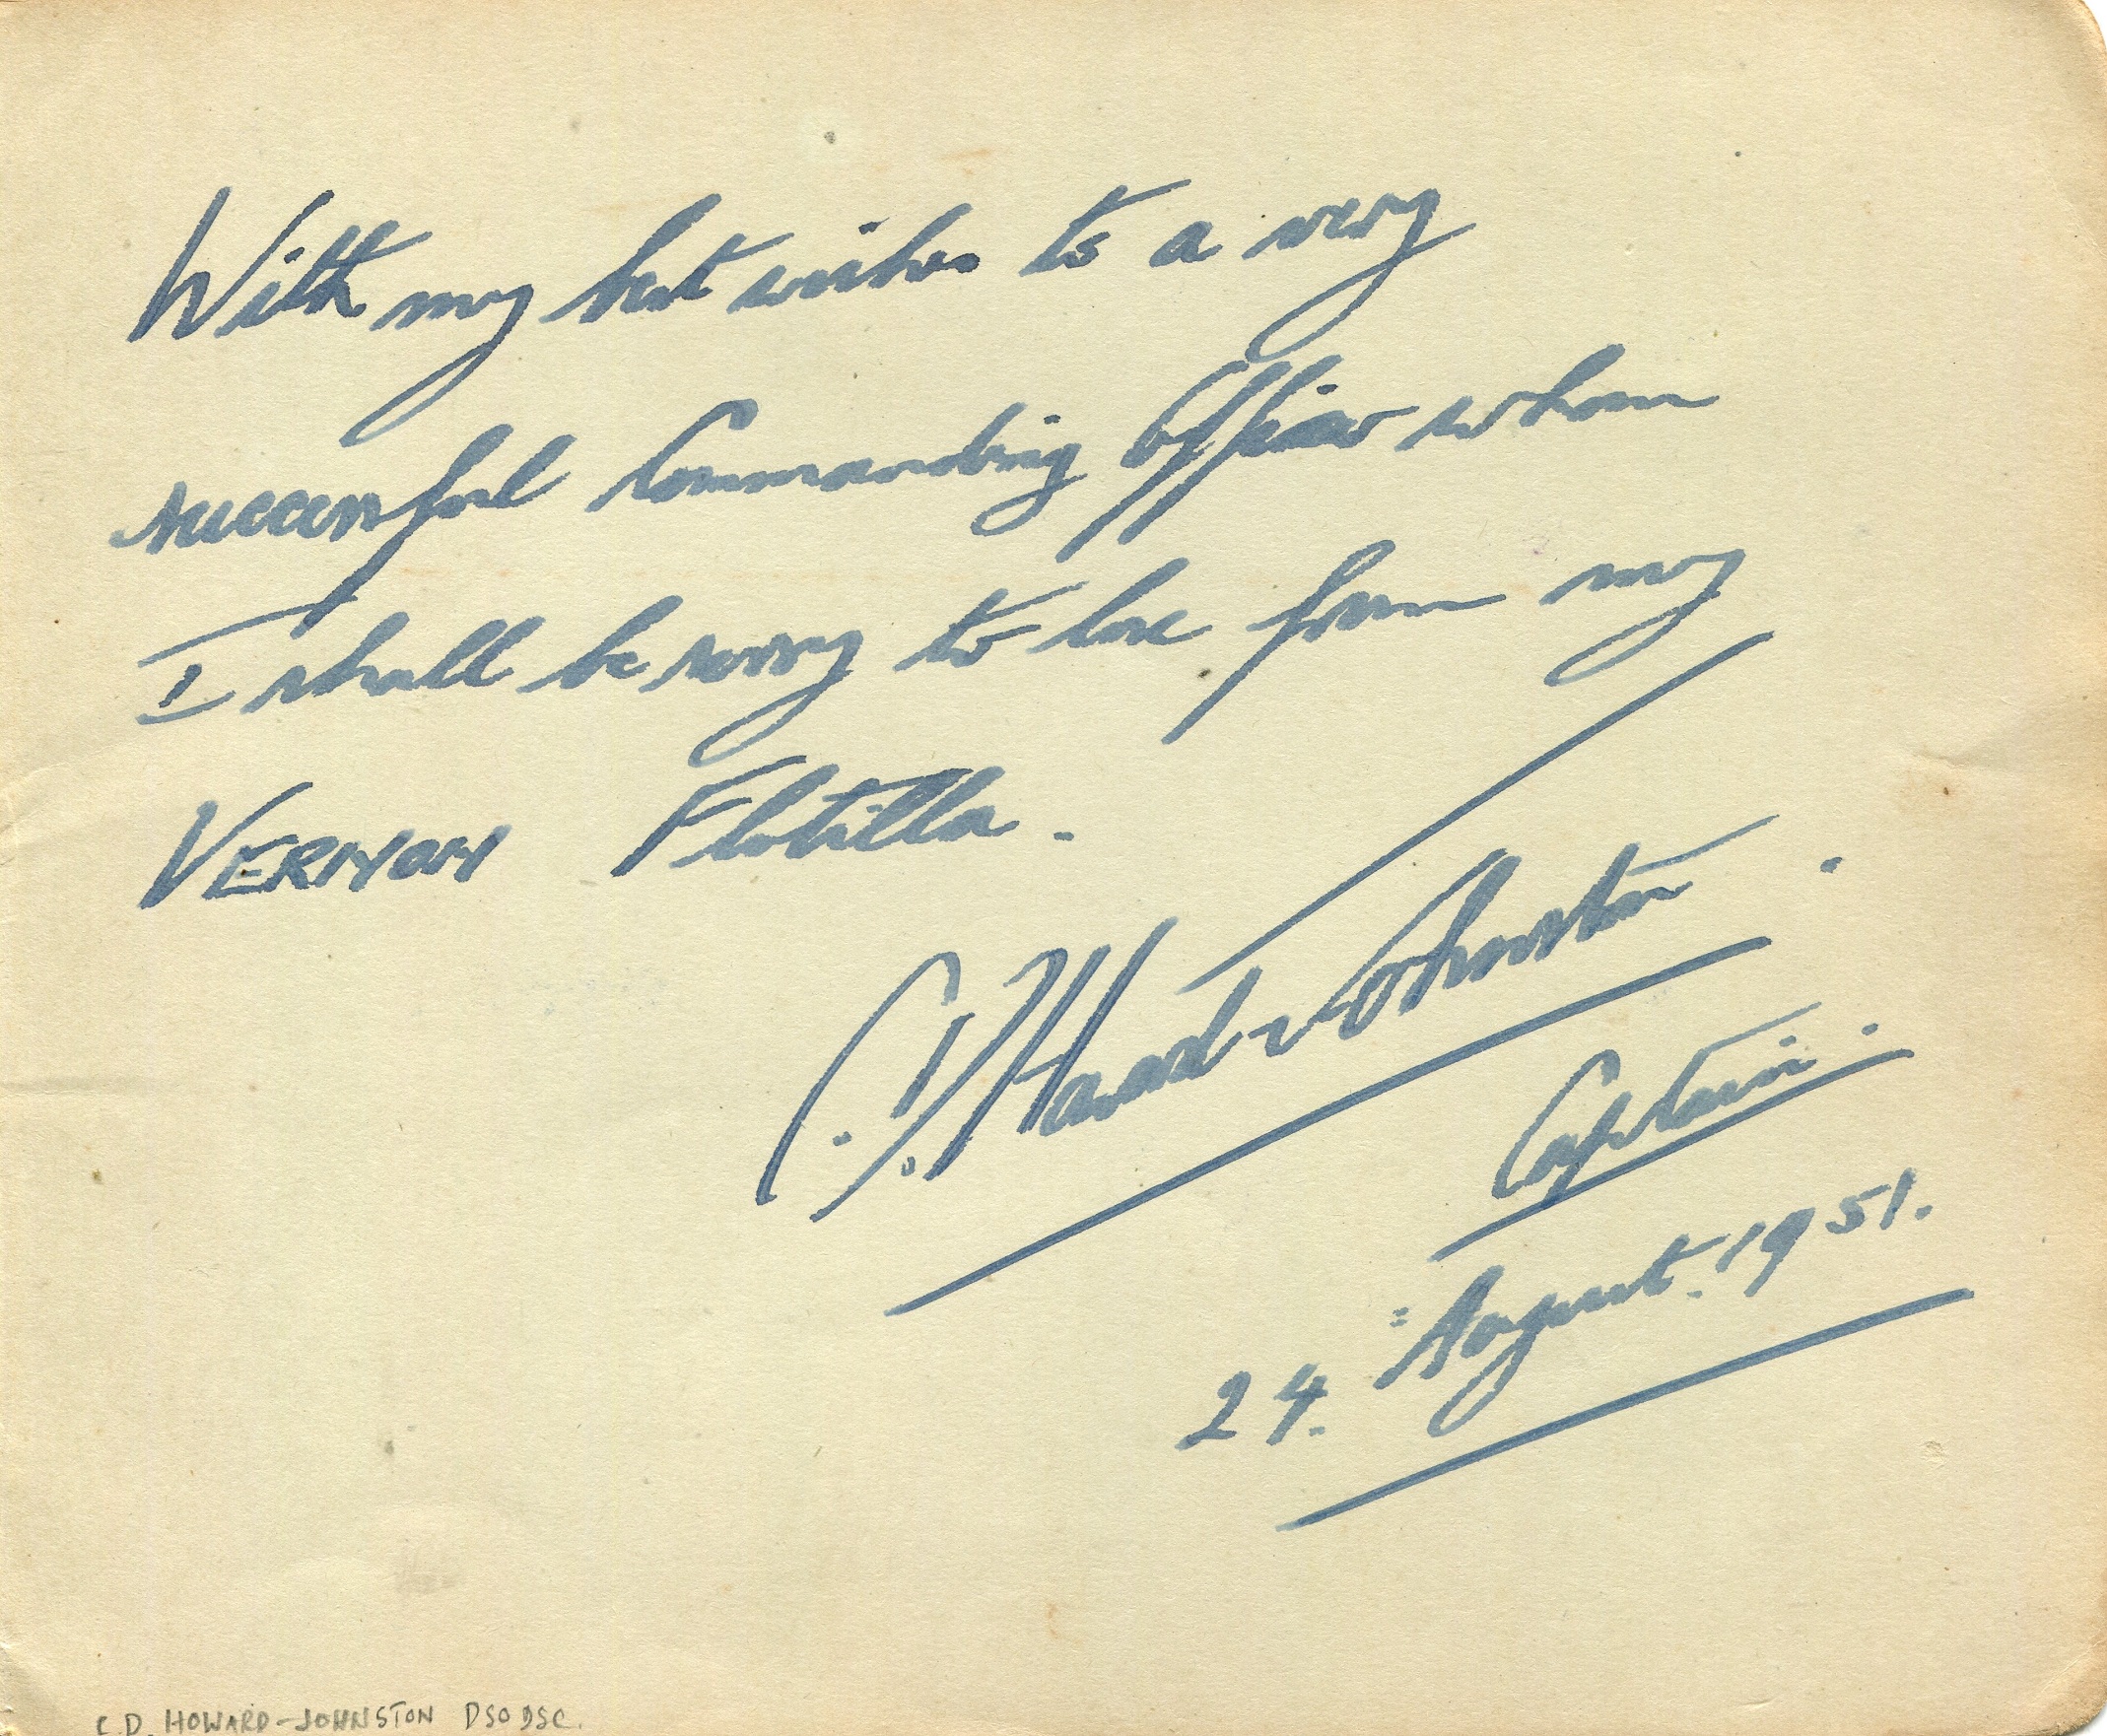 With my best wishes to a very
successful Commanding Officer whom
I shall be sorry to lose from my
VERNON Flotilla.
C.D. Howard-Johnston.
Captain.
24. August. 1951.
C.D. HOWARD-JOHNSTON DSO DSC.